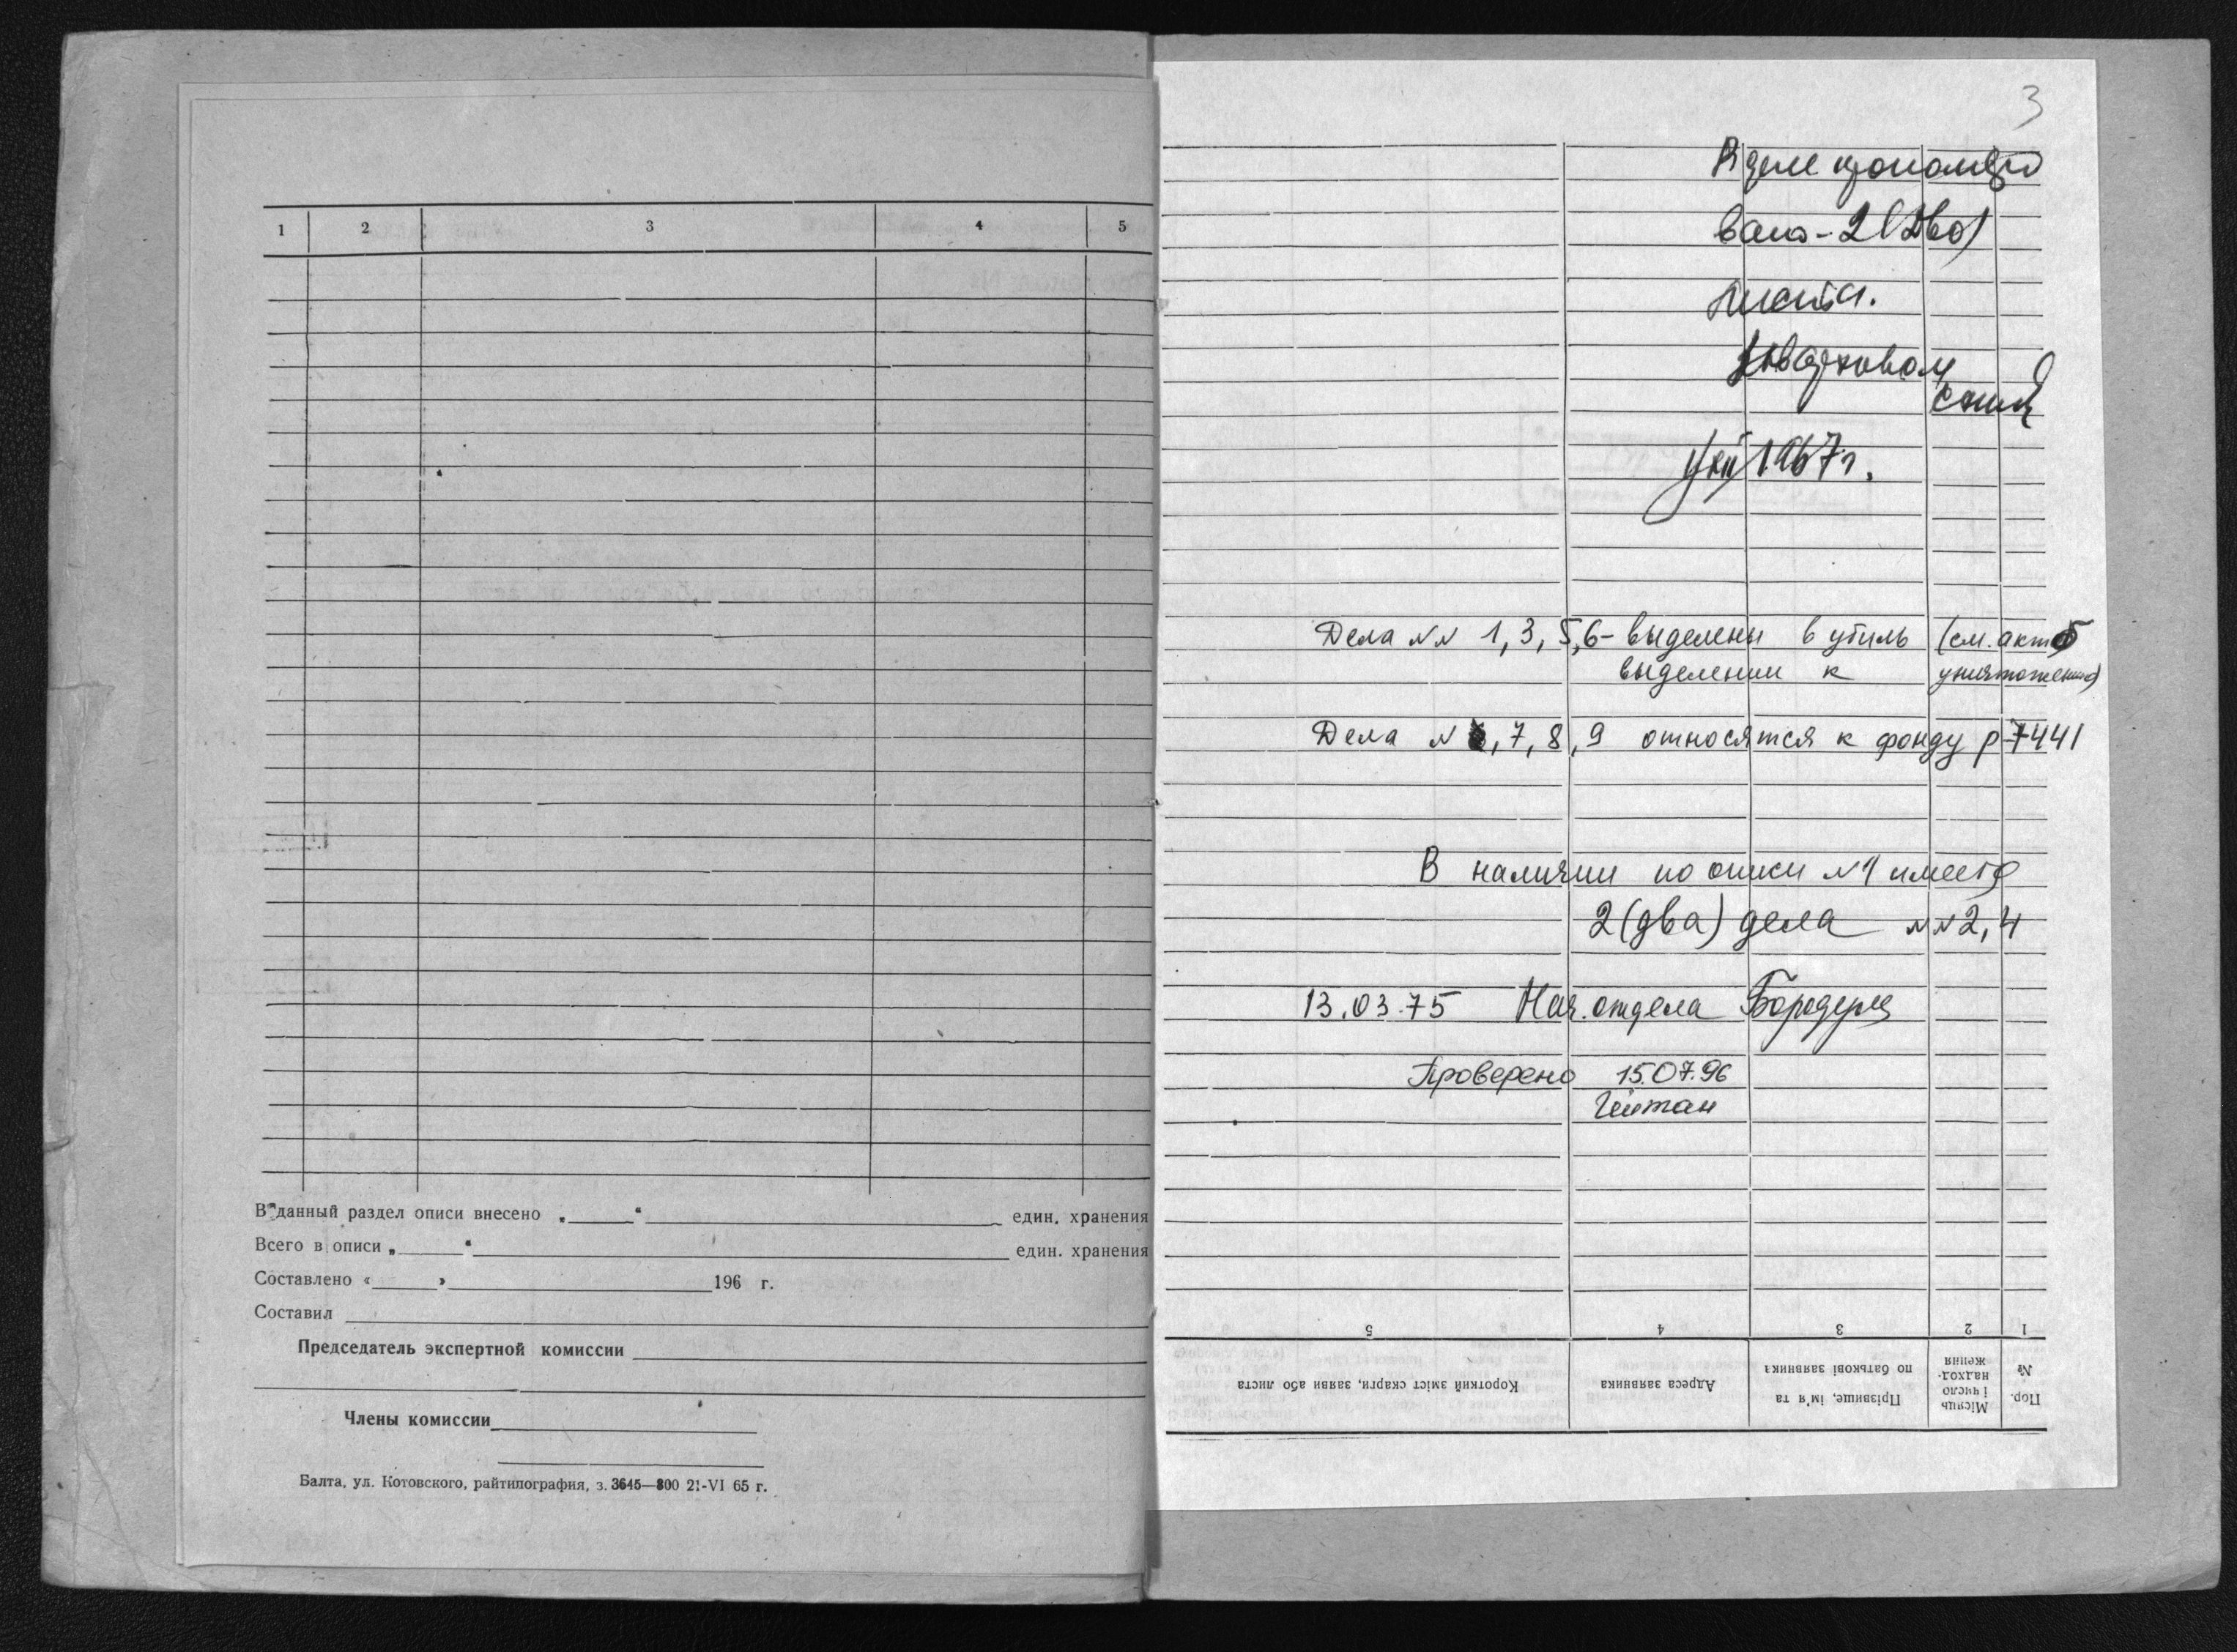 1 2 3 4 5
В данный раздел описи внесено „ “ един. хранения
Всего в описи „ “ един. хранения
Составлено « » 196 г.
Составил
Председатель экспертной комиссии
Члены комиссии
Балта, ул. Котовского, райтипография, з. 3645—800 21-VI 65 г.
3
В деле пронумеро
вано - 2 (два)
листа.
1967 г.
Дела №№ 1, 3, 5, 6 - выделены в утиль (см. акт о
выделении к уничтожению)
Дела № , 7, 8, 9 относятся к фонду р 7441
В наличии по описи № 1 имеется
2 (два) дела №№ 2, 4
13.03.75 Нач. отдела
Проверено 15.07.96
5 4 3 2 1
Короткий зміст скарги, заяви або листа
Адреса заявника
Прізвище, ім'я та
по батькові заявника
Місяць
і число
надход-
ження
Пор.
№